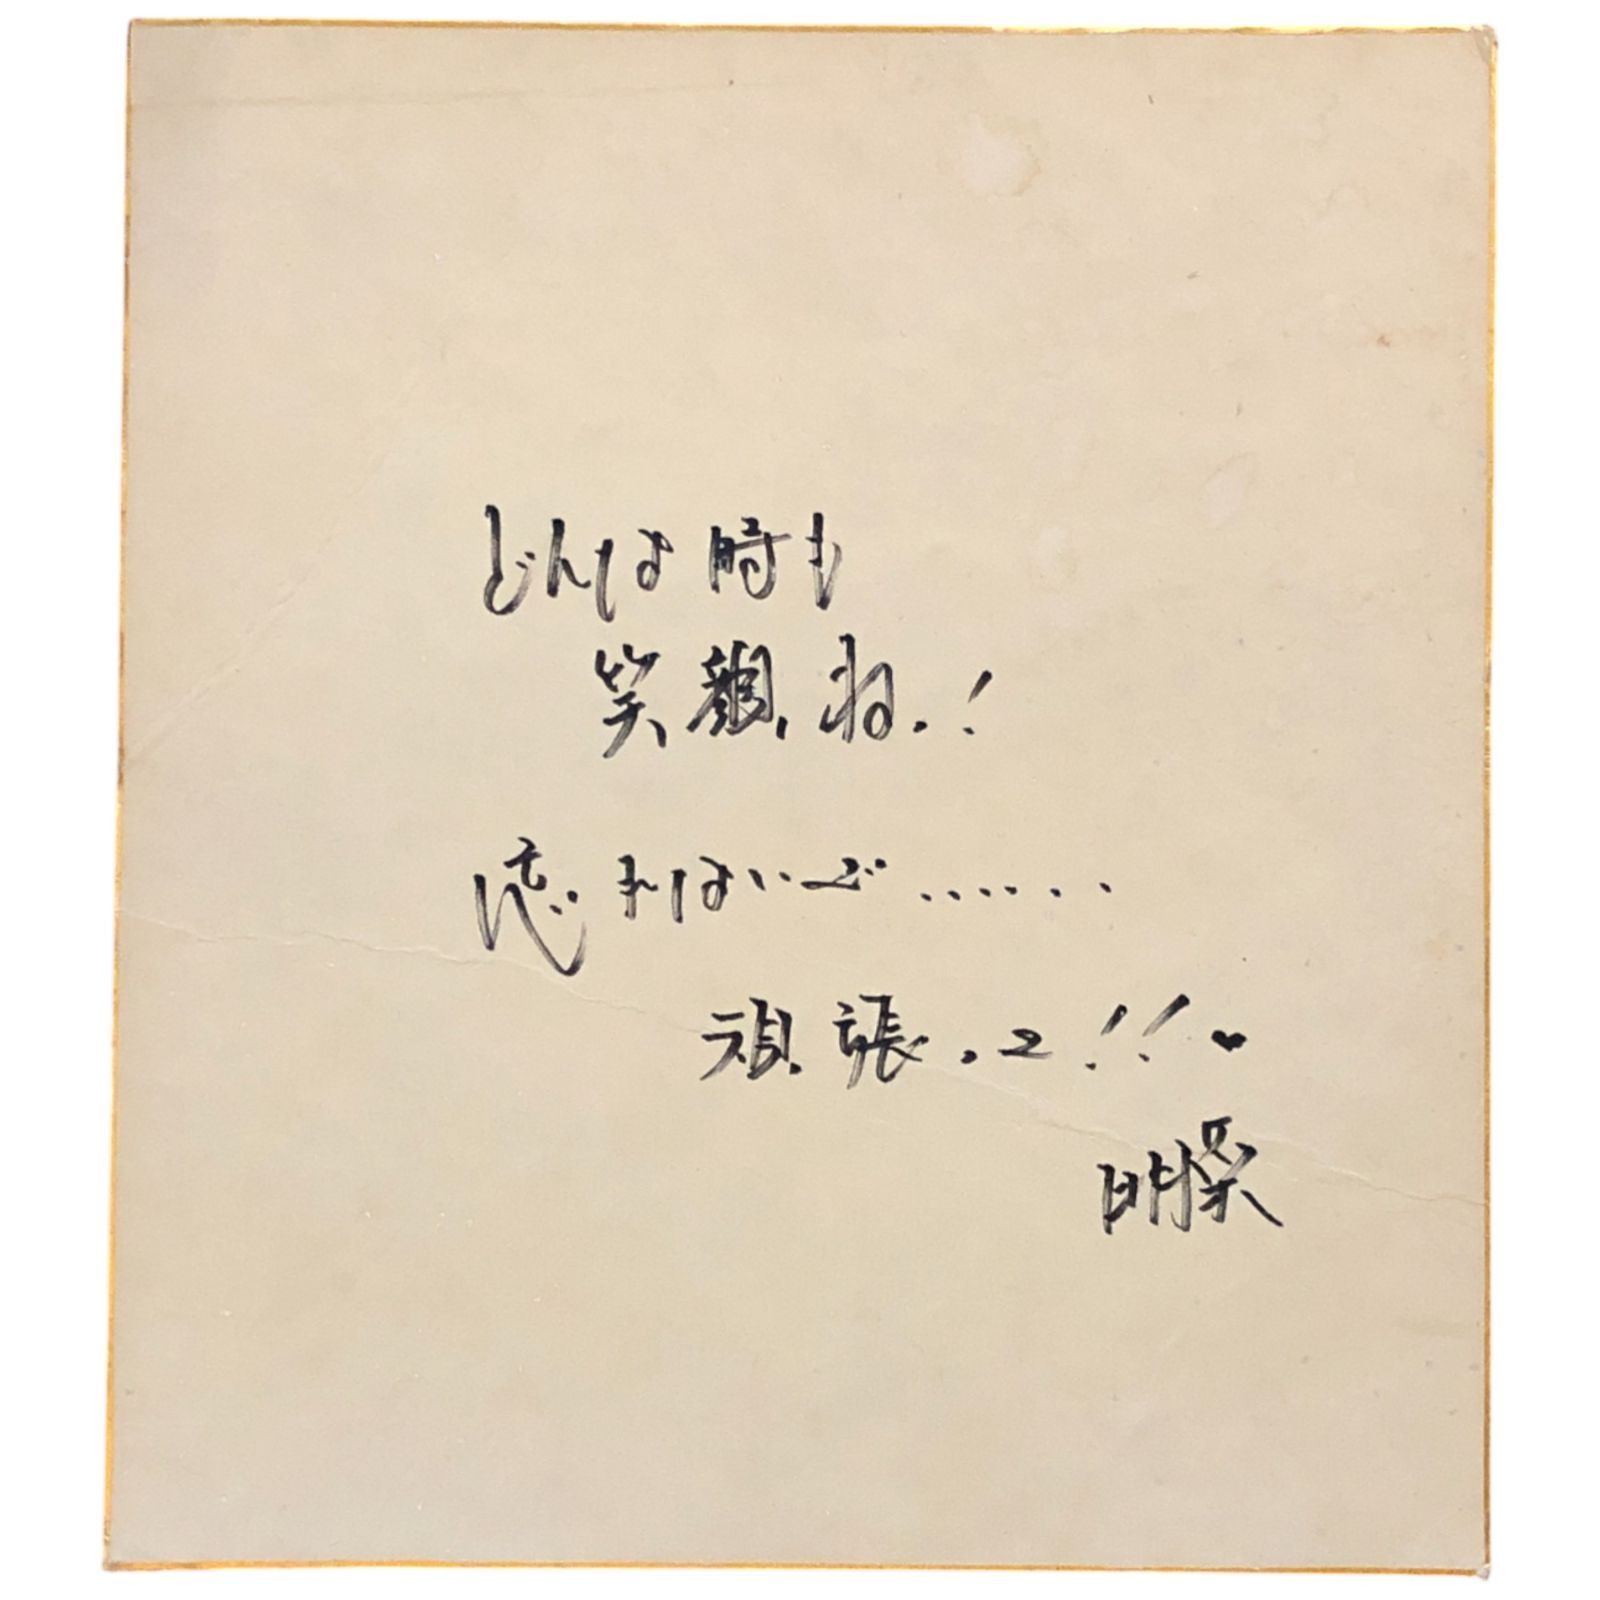 どんな時も
笑顔、ね.!
忘れないで……
頑張って!!♥